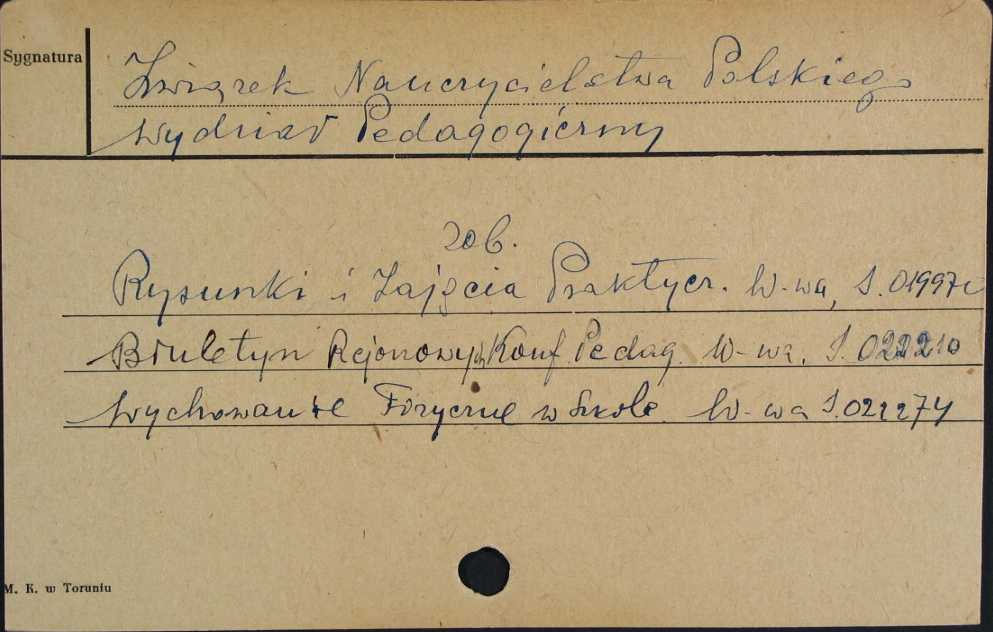 Sygnatura
Związek Nauczycielstwa Polskiego
Wydział Pedagogiczny
zob.
Rysunki i Zajęcia Praktycz. W-wa, S.01997
Biuletyn Rejonowych Konf. Pedag. W-wa, S.022210
Wychowanie Fizyczne w Szkole W-wa S.022274
M. K. w Toruniu